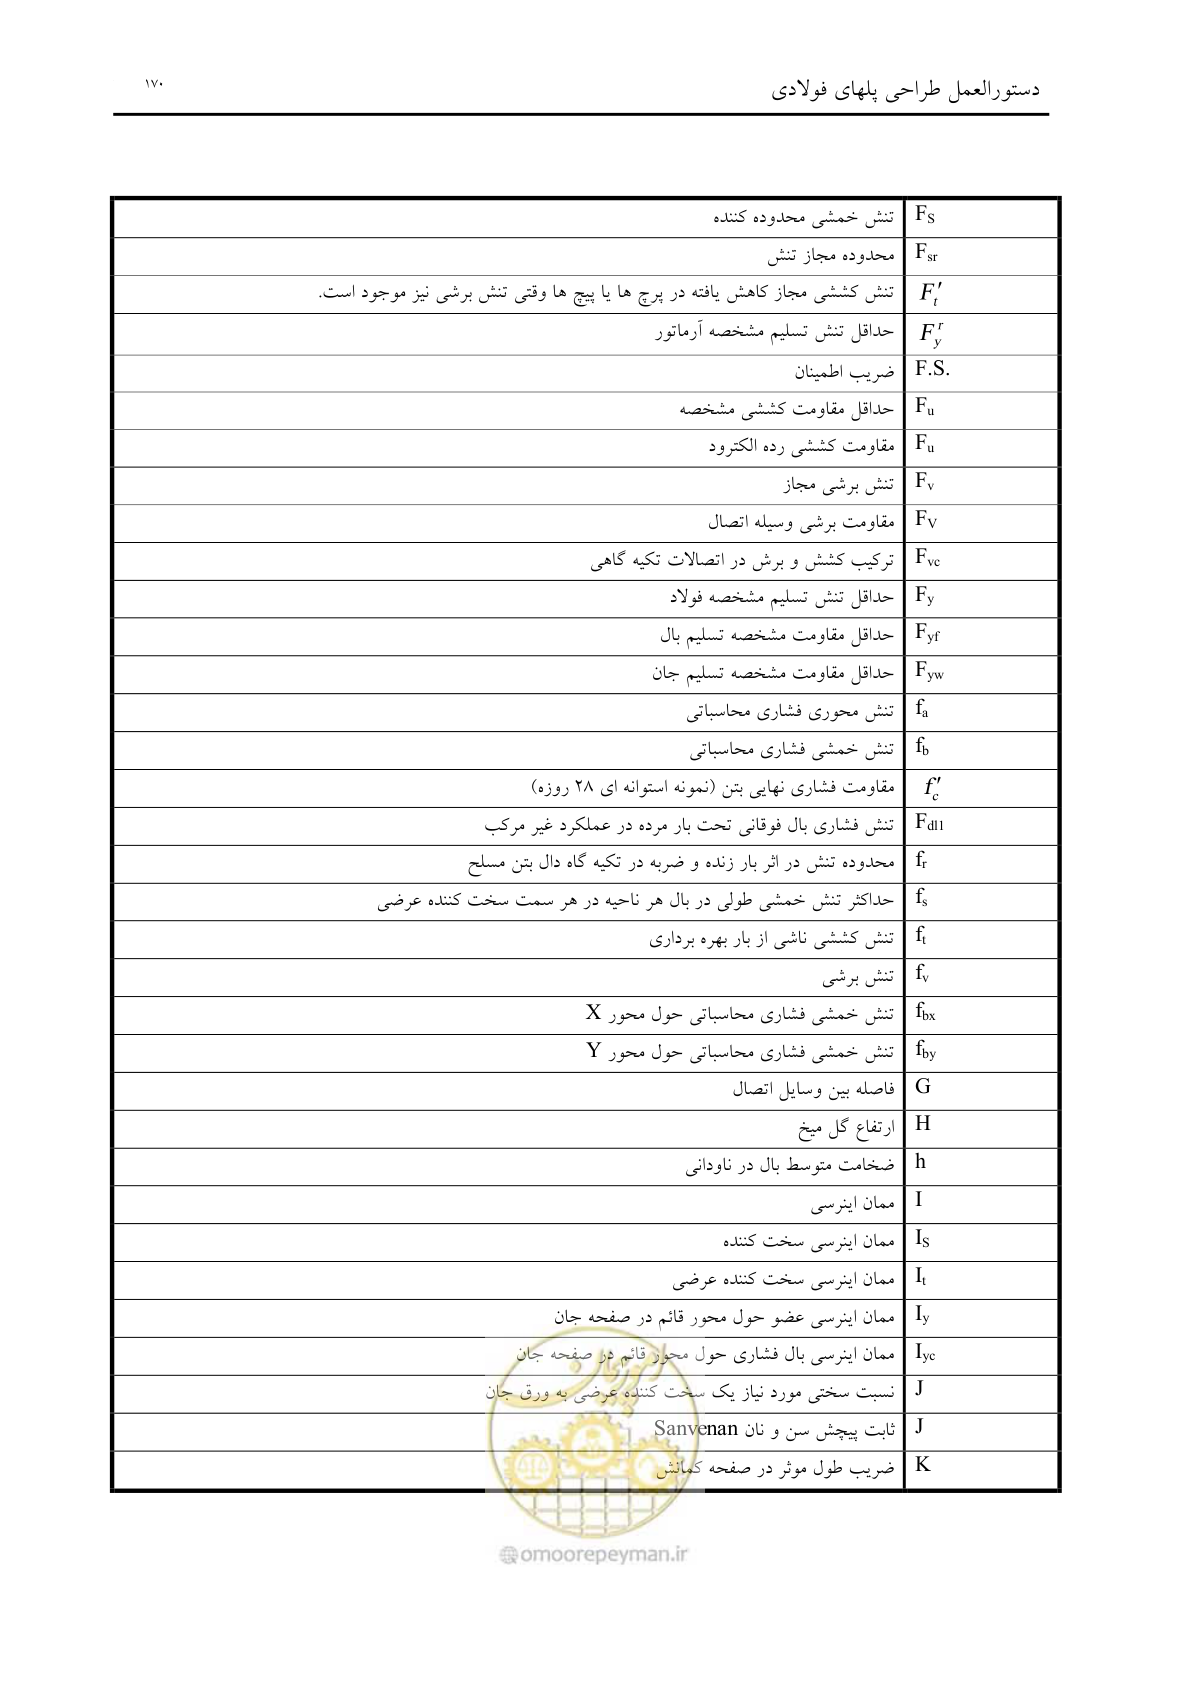 دستورالعمل طراحی پلهای فولادی ۱۷۰
F_S تنش خمشی محدوده کننده
F_sr محدوده مجاز تنش
F'_t تنش کششی مجاز کاهش یافته در پرچ ها یا پیچ ها وقتی تنش برشی نیز موجود است.
F^r_y حداقل تنش تسلیم مشخصه آرماتور
F.S. ضریب اطمینان
F_u حداقل مقاومت کششی مشخصه
F_u مقاومت کششی رده الکترود
F_v تنش برشی مجاز
F_V مقاومت برشی وسیله اتصال
F_vc ترکیب کشش و برش در اتصالات تکیه گاهی
F_y حداقل تنش تسلیم مشخصه فولاد
F_yf حداقل مقاومت مشخصه تسلیم بال
F_yw حداقل مقاومت مشخصه تسلیم جان
f_a تنش محوری فشاری محاسباتی
f_b تنش خمشی فشاری محاسباتی
f'_c مقاومت فشاری نهایی بتن (نمونه استوانه ای ۲۸ روزه)
F_dl1 تنش فشاری بال فوقانی تحت بار مرده در عملکرد غیر مرکب
f_r محدوده تنش در اثر بار زنده و ضربه در تکیه گاه دال بتن مسلح
f_s حداکثر تنش خمشی طولی در بال هر ناحیه در هر سمت سخت کننده عرضی
f_t تنش کششی ناشی از بار بهره برداری
f_v تنش برشی
f_bx تنش خمشی فشاری محاسباتی حول محور X
f_by تنش خمشی فشاری محاسباتی حول محور Y
G فاصله بین وسایل اتصال
H ارتفاع گل میخ
h ضخامت متوسط بال در ناودانی
I ممان اینرسی
I_S ممان اینرسی سخت کننده
I_t ممان اینرسی سخت کننده عرضی
I_y ممان اینرسی عضو حول محور قائم در صفحه جان
I_yc ممان اینرسی بال فشاری حول محور قائم در صفحه جان
J نسبت سختی مورد نیاز یک سخت کننده عرضی به ورق جان
J ثابت پیچش سن و نان Sanvenan
K ضریب طول موثر در صفحه کمانش
امور پیمان
@omoorepeyman.ir